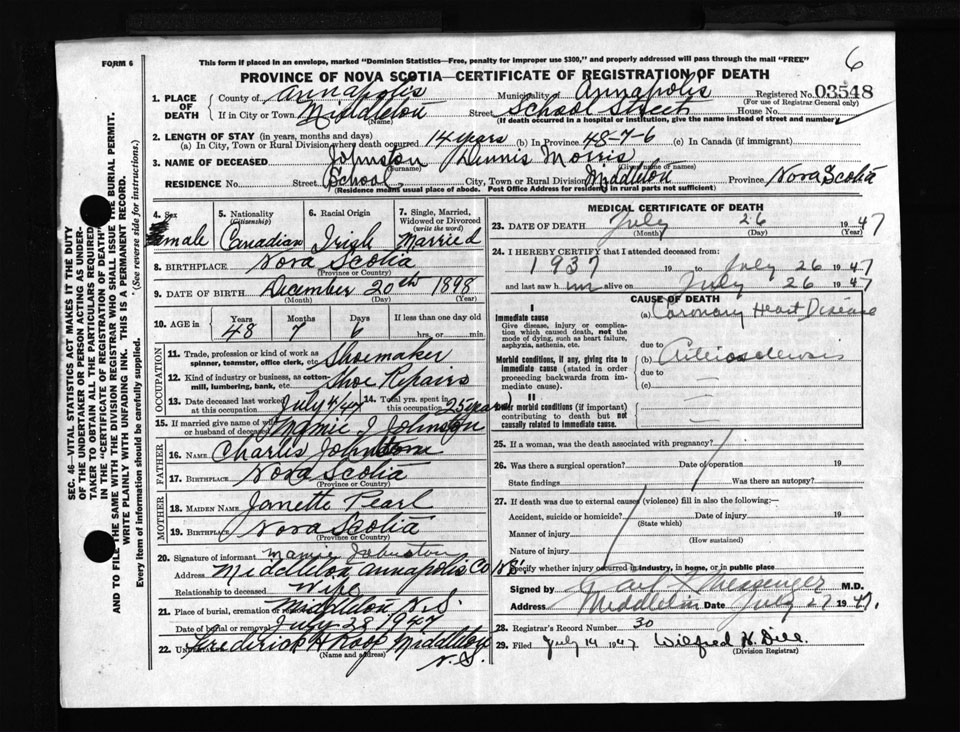 FORM 6
This form if placed in an envelope, marked "Dominion Statistics—Free, penalty for improper use $300," and properly addressed will pass through the mail "FREE"
6
PROVINCE OF NOVA SCOTIA—CERTIFICATE OF REGISTRATION OF DEATH
1. PLACE OF DEATH
County of Annapolis Municipality of Annapolis Registered No. 03548
(For use of Registrar General only)
If in City or Town Middleton Street School Street House No.
(Name) (If death occurred in a hospital or institution, give the name instead of street and number)
2. LENGTH OF STAY (in years, months and days)
(a) In City, Town or Rural Division where death occurred 14 years (b) In Province 48-7-6 (c) In Canada (if immigrant)
3. NAME OF DECEASED Johnston Dennis Morris
(Surname) (Given name or names)
RESIDENCE No. Street School City, Town or Rural Division Middleton Province Nova Scotia
(Residence means usual place of abode. Post Office Address for residents in rural parts not sufficient)
SEC. 46—VITAL STATISTICS ACT MAKES IT THE DUTY
OF THE UNDERTAKER OR PERSON ACTING AS UNDER-
TAKER TO OBTAIN ALL THE PARTICULARS REQUIRED
IN THE "CERTIFICATE OF REGISTRATION OF DEATH"
AND TO FILE THE SAME WITH THE DIVISION REGISTRAR WHO SHALL ISSUE THE BURIAL PERMIT.
WRITE PLAINLY WITH UNFADING INK. THIS IS A PERMANENT RECORD.
Every item of information should be carefully supplied. (See reverse side for instructions.)
4. Sex male
5. Nationality (Citizenship) Canadian
6. Racial Origin Irish
7. Single, Married, Widowed or Divorced (write the word) Married
8. BIRTHPLACE Nova Scotia
(Province or Country)
9. DATE OF BIRTH December 20th 1898
(Month) (Day) (Year)
10. AGE in Years Months Days If less than one day old
48 7 6 hrs. or min.
OCCUPATION
11. Trade, profession or kind of work as
spinner, teamster, office clerk, etc. Shoemaker
12. Kind of industry or business, as cotton-
mill, lumbering, bank, etc. Shoe Repairs
13. Date deceased last worked at this occupation July 4/47 14. Total yrs. spent in this occupation 25 years
15. If married give name of wife or husband of deceased Mamie J Johnston
FATHER
16. NAME Charles Johnstone
17. BIRTHPLACE Nova Scotia
(Province or Country)
MOTHER
18. MAIDEN NAME Janette Pearl
19. BIRTHPLACE Nova Scotia
(Province or Country)
20. Signature of informant Mamie Johnston
Address Middleton Annapolis Co N.S.
Relationship to deceased Wife
21. Place of burial, cremation or removal Middleton N.S.
Date of burial or removal July 28 1947
22. Undertaker Frederick H Roop Middleton
(Name and address) N.S.
MEDICAL CERTIFICATE OF DEATH
23. DATE OF DEATH July 26 1947
(Month) (Day) (Year)
24. I HEREBY CERTIFY that I attended deceased from:
1937 19 to July 26 1947
and last saw h im alive on July 26 1947
CAUSE OF DEATH
I
Immediate cause
Give disease, injury or complica-
tion which caused death, not the
mode of dying, such as heart failure,
asphyxia, asthenia, etc.
(a) Coronary Heart Disease
due to
Morbid conditions, if any, giving rise to
immediate cause (stated in order
proceeding backwards from im-
mediate cause).
(b) Arteriosclerosis
due to
(c) —
II
Other morbid conditions (if important)
contributing to death but not
causally related to immediate cause.
25. If a woman, was the death associated with pregnancy?
26. Was there a surgical operation? Date of operation 19
State findings Was there an autopsy?
27. If death was due to external causes (violence) fill in also the following:—
Accident, suicide or homicide? Date of injury 19
(State which)
Manner of injury
(How sustained)
Nature of injury
Specify whether injury occurred in industry, in home, or in public place
Signed by Messenger M.D.
Address Middleton Date July 27 1947.
28. Registrar's Record Number 30
29. Filed July 1947 Wilfred H. Dill
(Division Registrar)